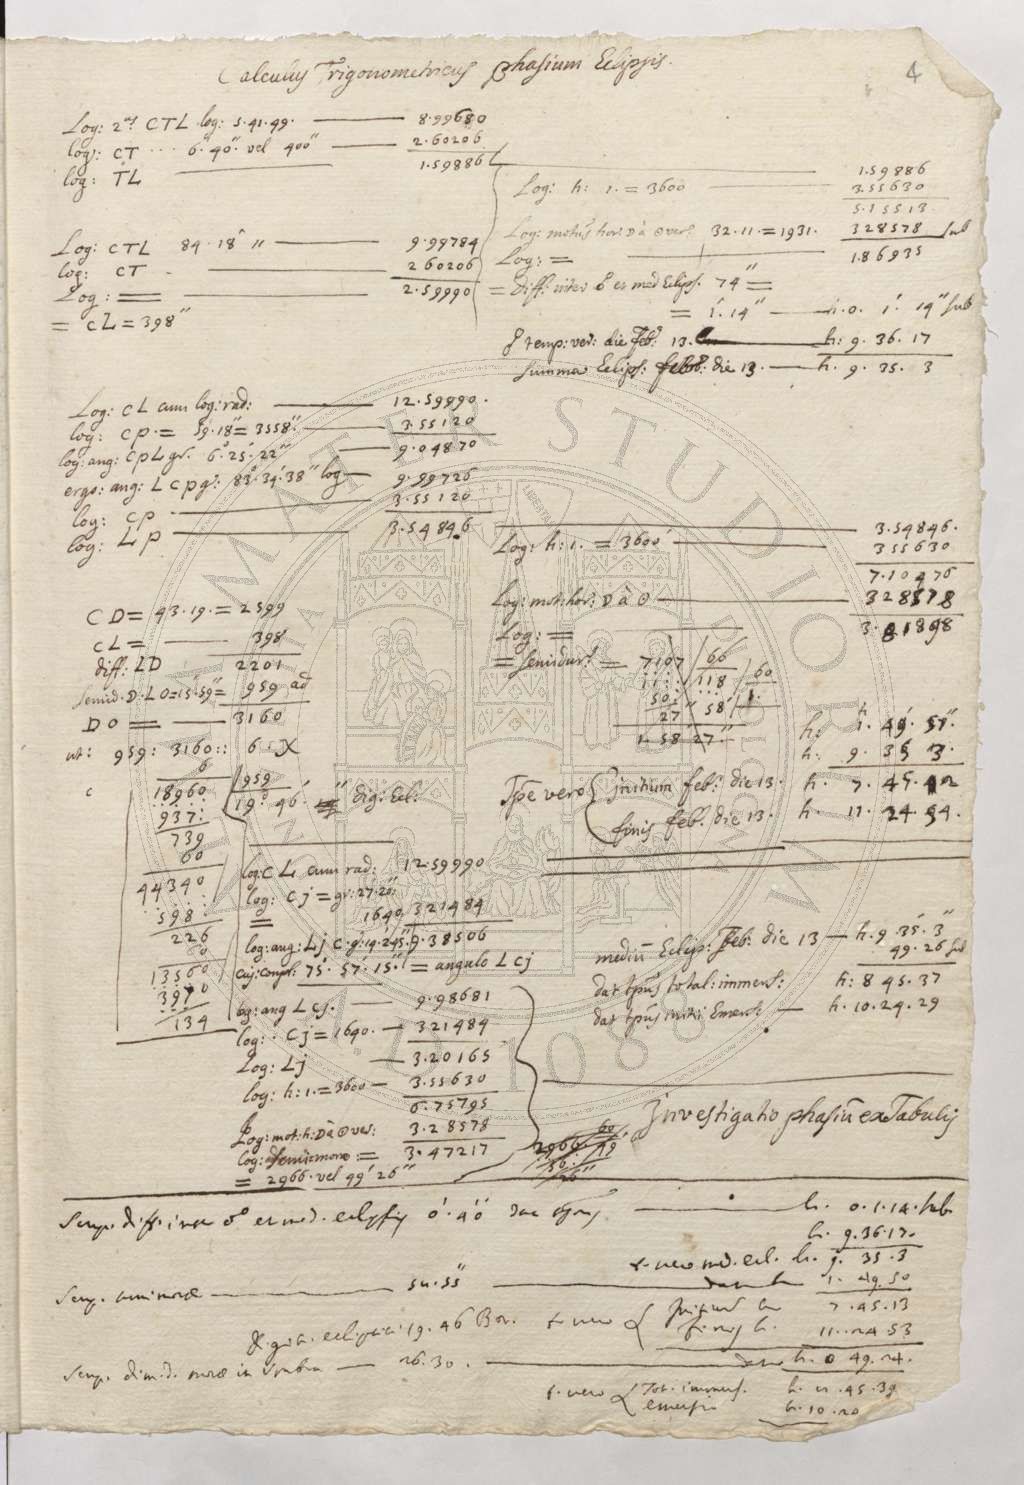 Calculus Trigonometricus phasium Eclipsis.
4
Log: 2us CTL log: 5.41.49. 8.99680
log: CT ... 6.'40." vel 400" 2.60206
log: TL 1.59886
1.59886
Log: h: 1. = 3600 3.55630
5.15513
Log: motus hor: D à O ver: 32.11. = 1931. 328578 sub
Log: = 1.86935
= diff: inter & et med Eclips. 74" =
= 1'. 14" h. 0. 1'. 14" sub
temp: ver: die Feb: 13. h: 9. 36. 17
summa Eclips: feb: die 13. h. 9. 35. 3
Log: CTL 84.18' " 9.99784
log: CT 260206
Log: = 2.59990
= CL = 398"
Log: CL cum log: rad: 12.59990.
log: CP. = 59'.18" = 3558". 3.55120
log: ang: CPL gr. 6°.25'.22" 9.04870
ergo: ang: LCP gr: 83°.34'.38" log 9.99726
log: CP 3.55120
log: LP 3.54846
3.54846.
Log: h: 1. = 3600 355630
7.10476
Log: mot: hor: D à O 328578
Log: = 3.81898
= semidur: = 7107 / 66
11 : : / 118 / 60
50: ... / 1.
27" 58'
1. 58' 27."
h: 1. 49'. 51".
h: 9. 35 3.
Tpe vero initium feb: die 13. h. 7. 45. 12
finis feb. die 13. h. 11. 24. 54.
CD = 43.19. = 2599
CL = 398
diff: LD 2201
semid. D. LO = 15'.59" = 959 ad
DO = 3160
ut: 959: 3160:: 6. X
6
18960 / 959
937: / 19°. 46' dig: Ecl:
739
60
44340
598
226
60
13560
3970
134
log: CL cum rad: 12.59990
log: Cj = gr: 27.20":
= 1640 321484
log: ang: Lj C. 9.38506
cuj: compl: 75°. 57'. 15." = angulo LCj
log: ang LCj. 9.98681
log: Cj = 1640. 321484
Log: Lj 3.20165
log: h: 1. = 3600 3.55630
6.75795
Log: mot: h: D à O ver: 3.28578
log: semimorae = 3.47217
= 2966. vel 49' 26"
mediu Eclip: Feb: die 13 h. 9. 35'. 3"
49. 26 sub
dat tpus total: immers: h: 8 45. 37
dat tpus initii Emers: h. 10. 24. 29
Investigatio phasiu ex Tabulis
diff. inter et med. eclipsis 0'. 40" h. 0. 1. 14. sub
h. 9. 36. 17.
t. vero med. ecl. h. 9. 35. 3
54. 55" 1. 49. 50
19. 46 Bor. t. vero 7. 45. 13
finis h. 11. 24 53
dimid. morae in umbra 26. 30. h. 0 49. 24.
t. vero Tot. immers. 45. 39
emersio h. 10. 20
ALMA MATER STUDIORUM
A.D. 1088